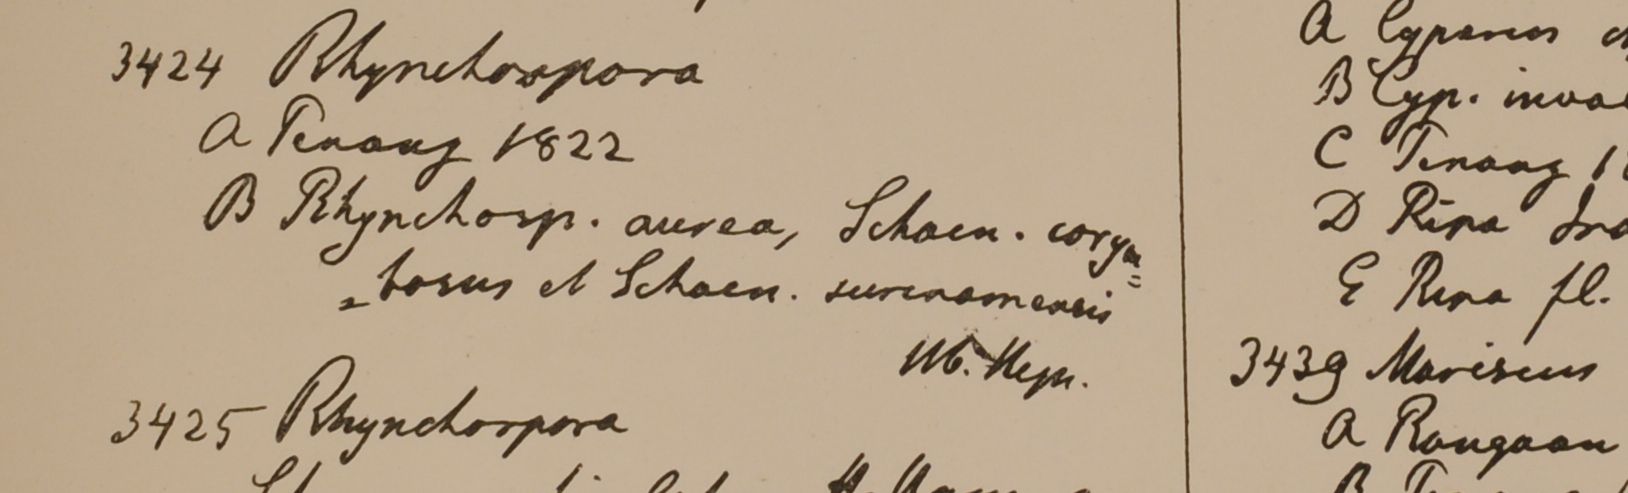 3424 Rhynchospora
A Penang 1822
B Rhynchosp. aurea, Schoen. corym=
=bosus et Schoen. surinamensis
Hb. Heyn.
3425 Rhynchospora
A Cyperus
B Cyp.
C Penang
D Ripa
E Ripa fl.
3439 Mariscus
A Rangoon
B